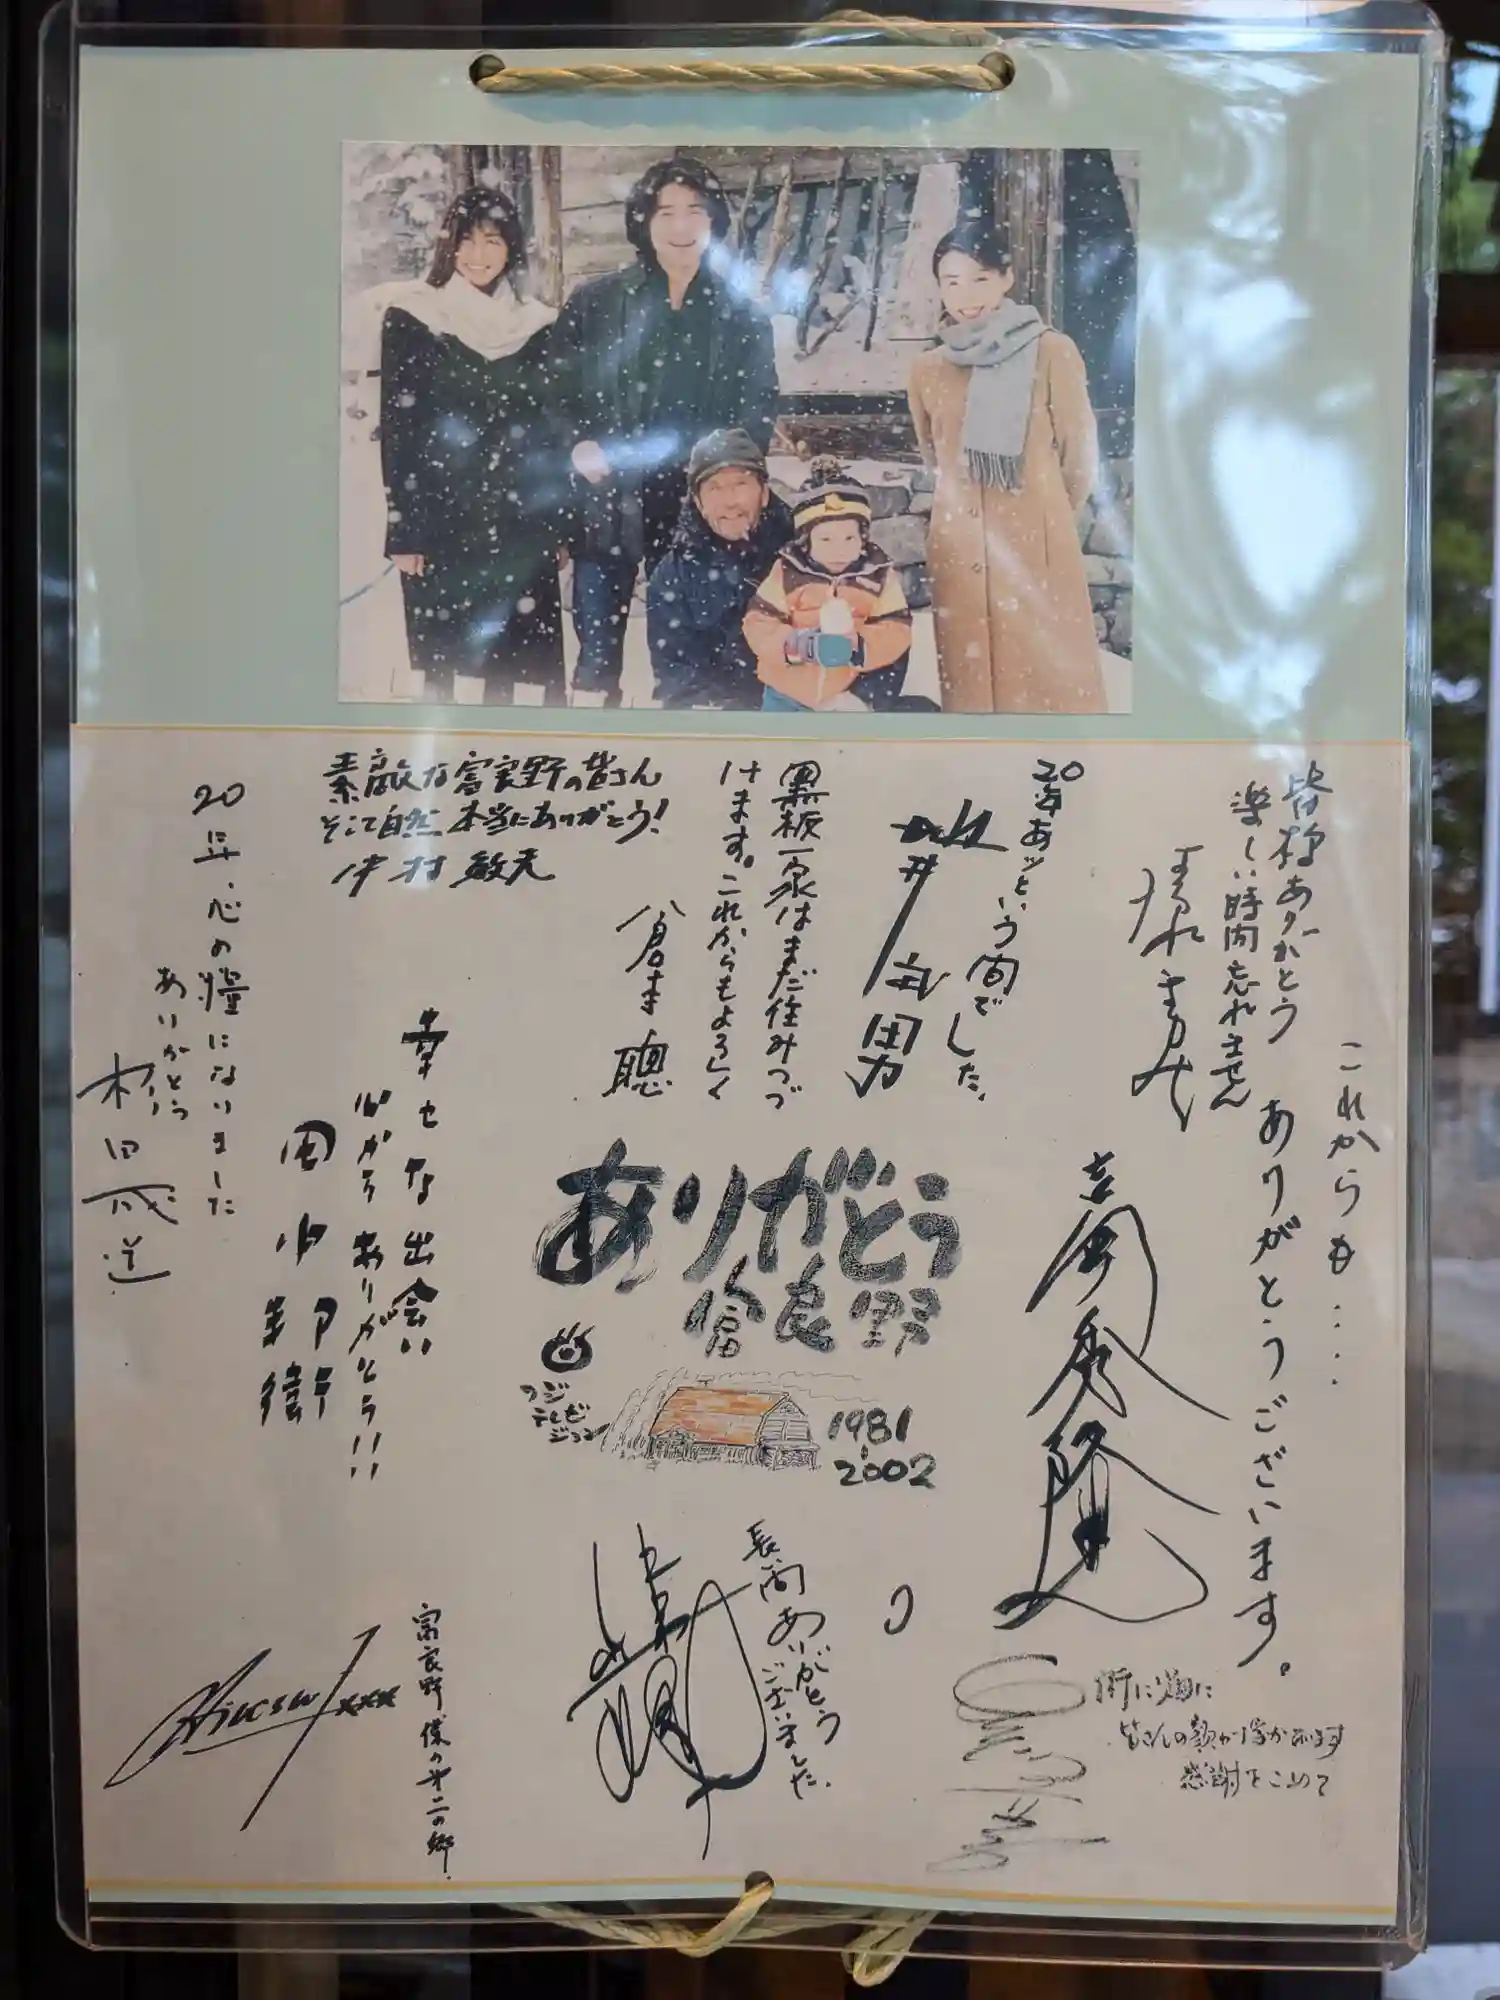 皆様ありがとう
楽しい時間忘れません
これからも‥‥
ありがとうございます。
吉岡秀隆
20年あッという間でした。
地井武男
黒板一家はまだ住みつづ
けます。これからもよろしく
倉本聰
素敵な富良野の皆さん
そして自然 本当にありがとう!
中村敏夫
幸せな出会い
心からありがとう!!
田中邦衛
20年、心の糧になりました
ありがとう
杉田成道
ありがとう
富良野
フジ
テレビ
ジョン
1981
2002
長い間ありがとう
ございました。
中嶋朋子
富良野 僕の第二の郷
街に畑に
皆さんの顔が浮かびます
感謝をこめて